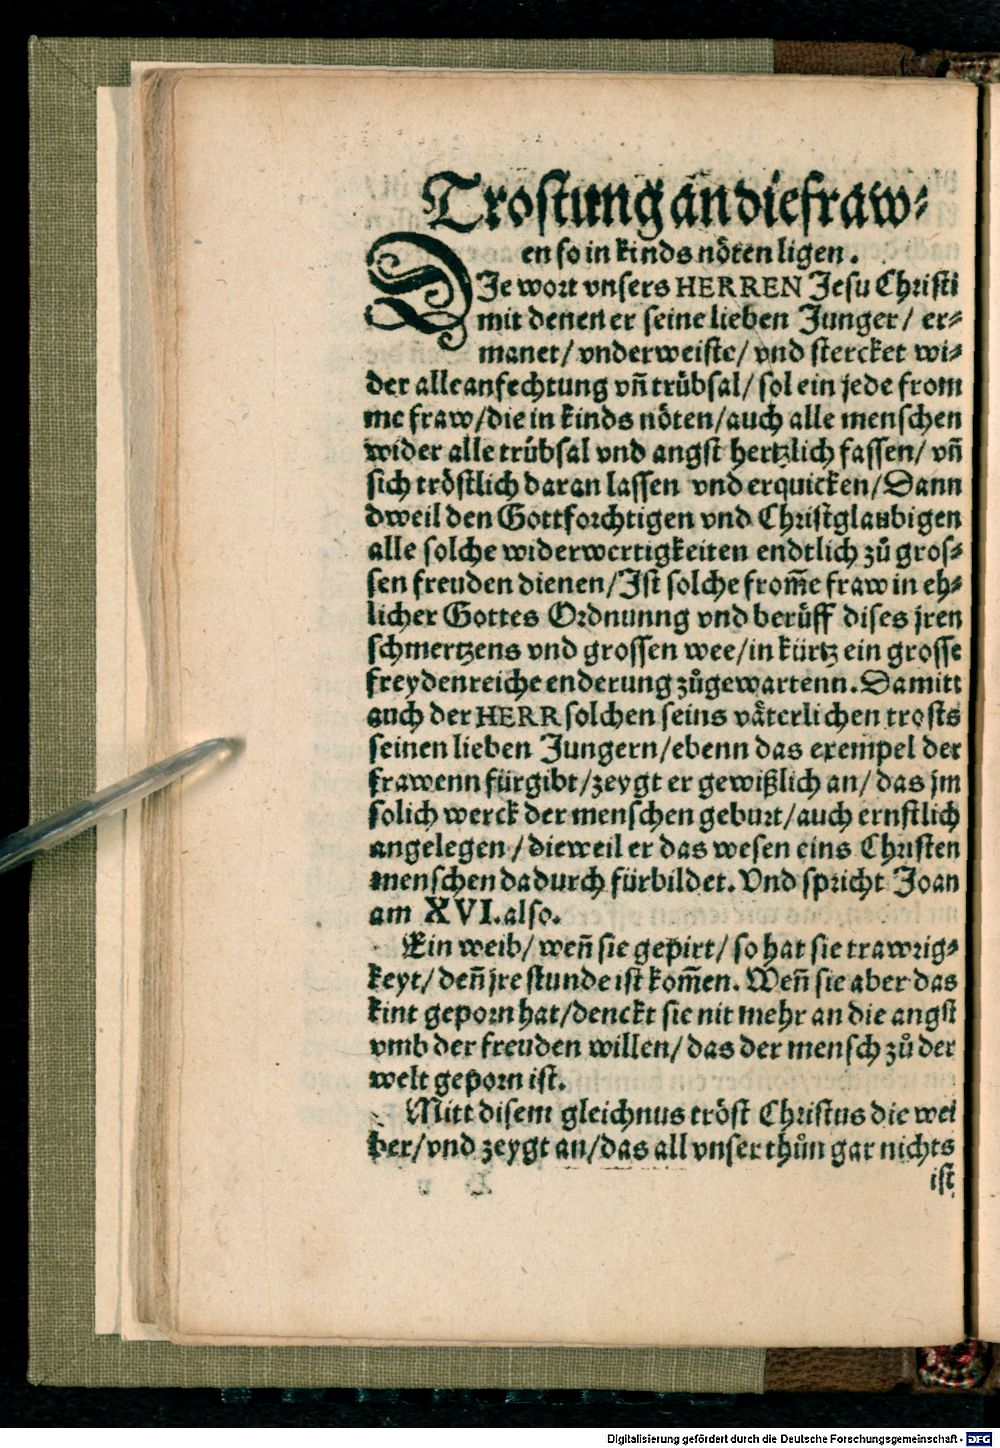 Trostung an die fraw⸗
en so in kinds nöten ligen.
DJe wort vnsers HERREN Jesu Christi
mit denen er seine lieben Junger/ er⸗
manet/ vnderweiste/ vnd stercket wi⸗
der alle anfechtung vñ trübsal/ sol ein jede from
me fraw/die in kinds nöten/auch alle menschen
wider alle trübsal vnd angst hertzlich fassen/ vñ
sich tröstlich daran lassen vnd erquicken/Dann
dweil den Gottforchtigen vnd Christglaubigen
alle solche widerwertigkeiten endtlich zů gros⸗
sen freuden dienen/Jst solche from̃e fraw in eh⸗
licher Gottes Ordnunng vnd berůff dises jren
schmertzens vnd grossen wee/in kürtz ein grosse
freydenreiche enderung zůgewartenn. Damitt
auch der HERR solchen seins väterlichen trosts
seinen lieben Jungern/ebenn das exempel der
frawenn fürgibt/zeygt er gewißlich an/ das jm
solich werck der menschen geburt/auch ernstlich
angelegen/dieweil er das wesen eins Christen
menschen dadurch fürbildet. Vnd spricht Joan
am XVI. also.
Ein weib/ weñ sie gepirt/ so hat sie trawrig⸗
keyt/ deñ jre stunde ist kom̃en. Weñ sie aber das
kint geporn hat/denckt sie nit mehr an die angst
vmb der freuden willen/ das der mensch zů der
welt geporn ist.
Mitt disem gleichnus tröst Christus die wei
ber/vnd zeygt an/das all vnser thůn gar nichts
ist
Digitalisierung gefördert durch die Deutsche Forschungsgemeinschaft - DFG